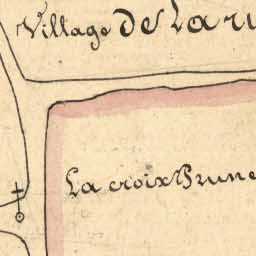 Village De La ru
La croix Brune